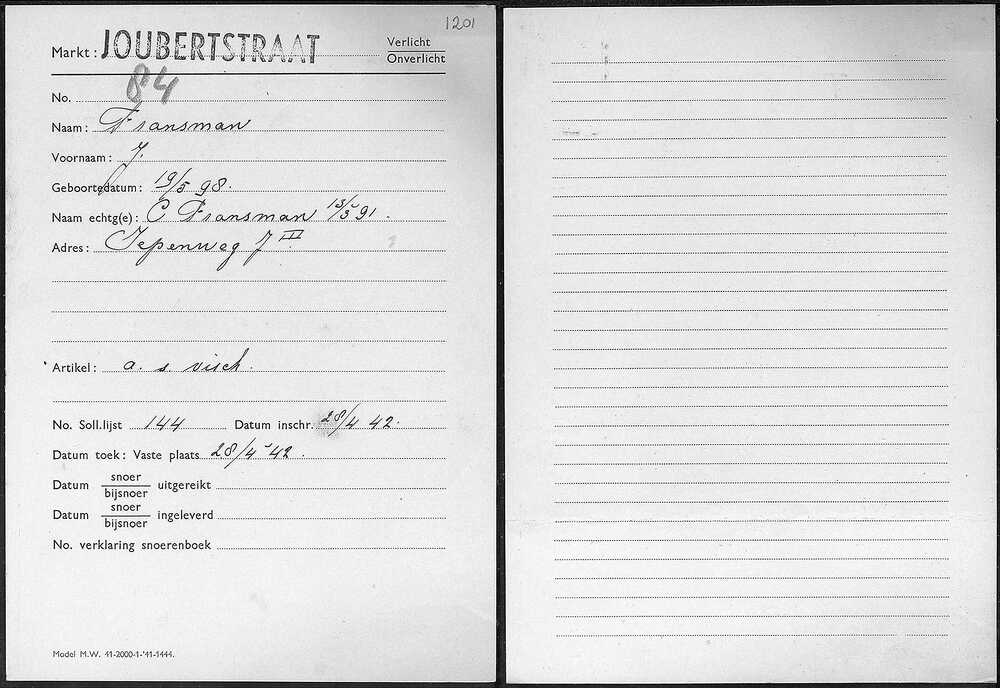 1201
Markt: JOUBERTSTRAAT Verlicht
Onverlicht
No. 84
Naam: Fransman
Voornaam: J.
Geboortedatum: 19/5 98.
Naam echtg(e): C Fransman 13/3 91.
Adres: Iepenweg 7 III
Artikel: a. s. visch.
No. Soll.lijst 144 Datum inschr. 28/4 42.
Datum toek: Vaste plaats 28/4 - 42.
Datum snoer
bijsnoer uitgereikt
Datum snoer
bijsnoer ingeleverd
No. verklaring snoerenboek
Model M.W. 41-2000-1-'41-1444.